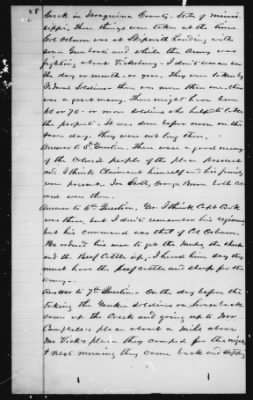 Creek in Issaquena County, State of Missis
sippi. These things were taken at the time
Col Osburn was at Skipwith Landing with
some Gunboats and while the Army was
fighting about Vicksburg. I don't remember
the day or month or year. They were taken by
Federal Soldiers there was more than one, there
was a good many. There might have been
60 or 70 - or more soldiers who helped to take
the property. It was done before noon on the
same day. They were not long there.
Answer to 5th Question. There were a good many
of the Colored people of the place present
and I think Claimant himself and his family
were present. Joe Scott, George Brown both Col
ored were there.
Answer to 6th Question. Yes. I think Capt Cook
was there, but I don't remember his regiment
but his command was that of Col Osburn.
He ordered his men to get the mules, the sheep
and the Beef Cattle up, I heard him say they
must have the Beef Cattle and sheep for the
army.
Answer to 7th Question. On the day before the
taking the Yankee soldiers on horseback
came up the Creek and going up to Mr
Campbell's place about a mile above
Mr Vick's place they camped for the night
& next morning they came back and stopped